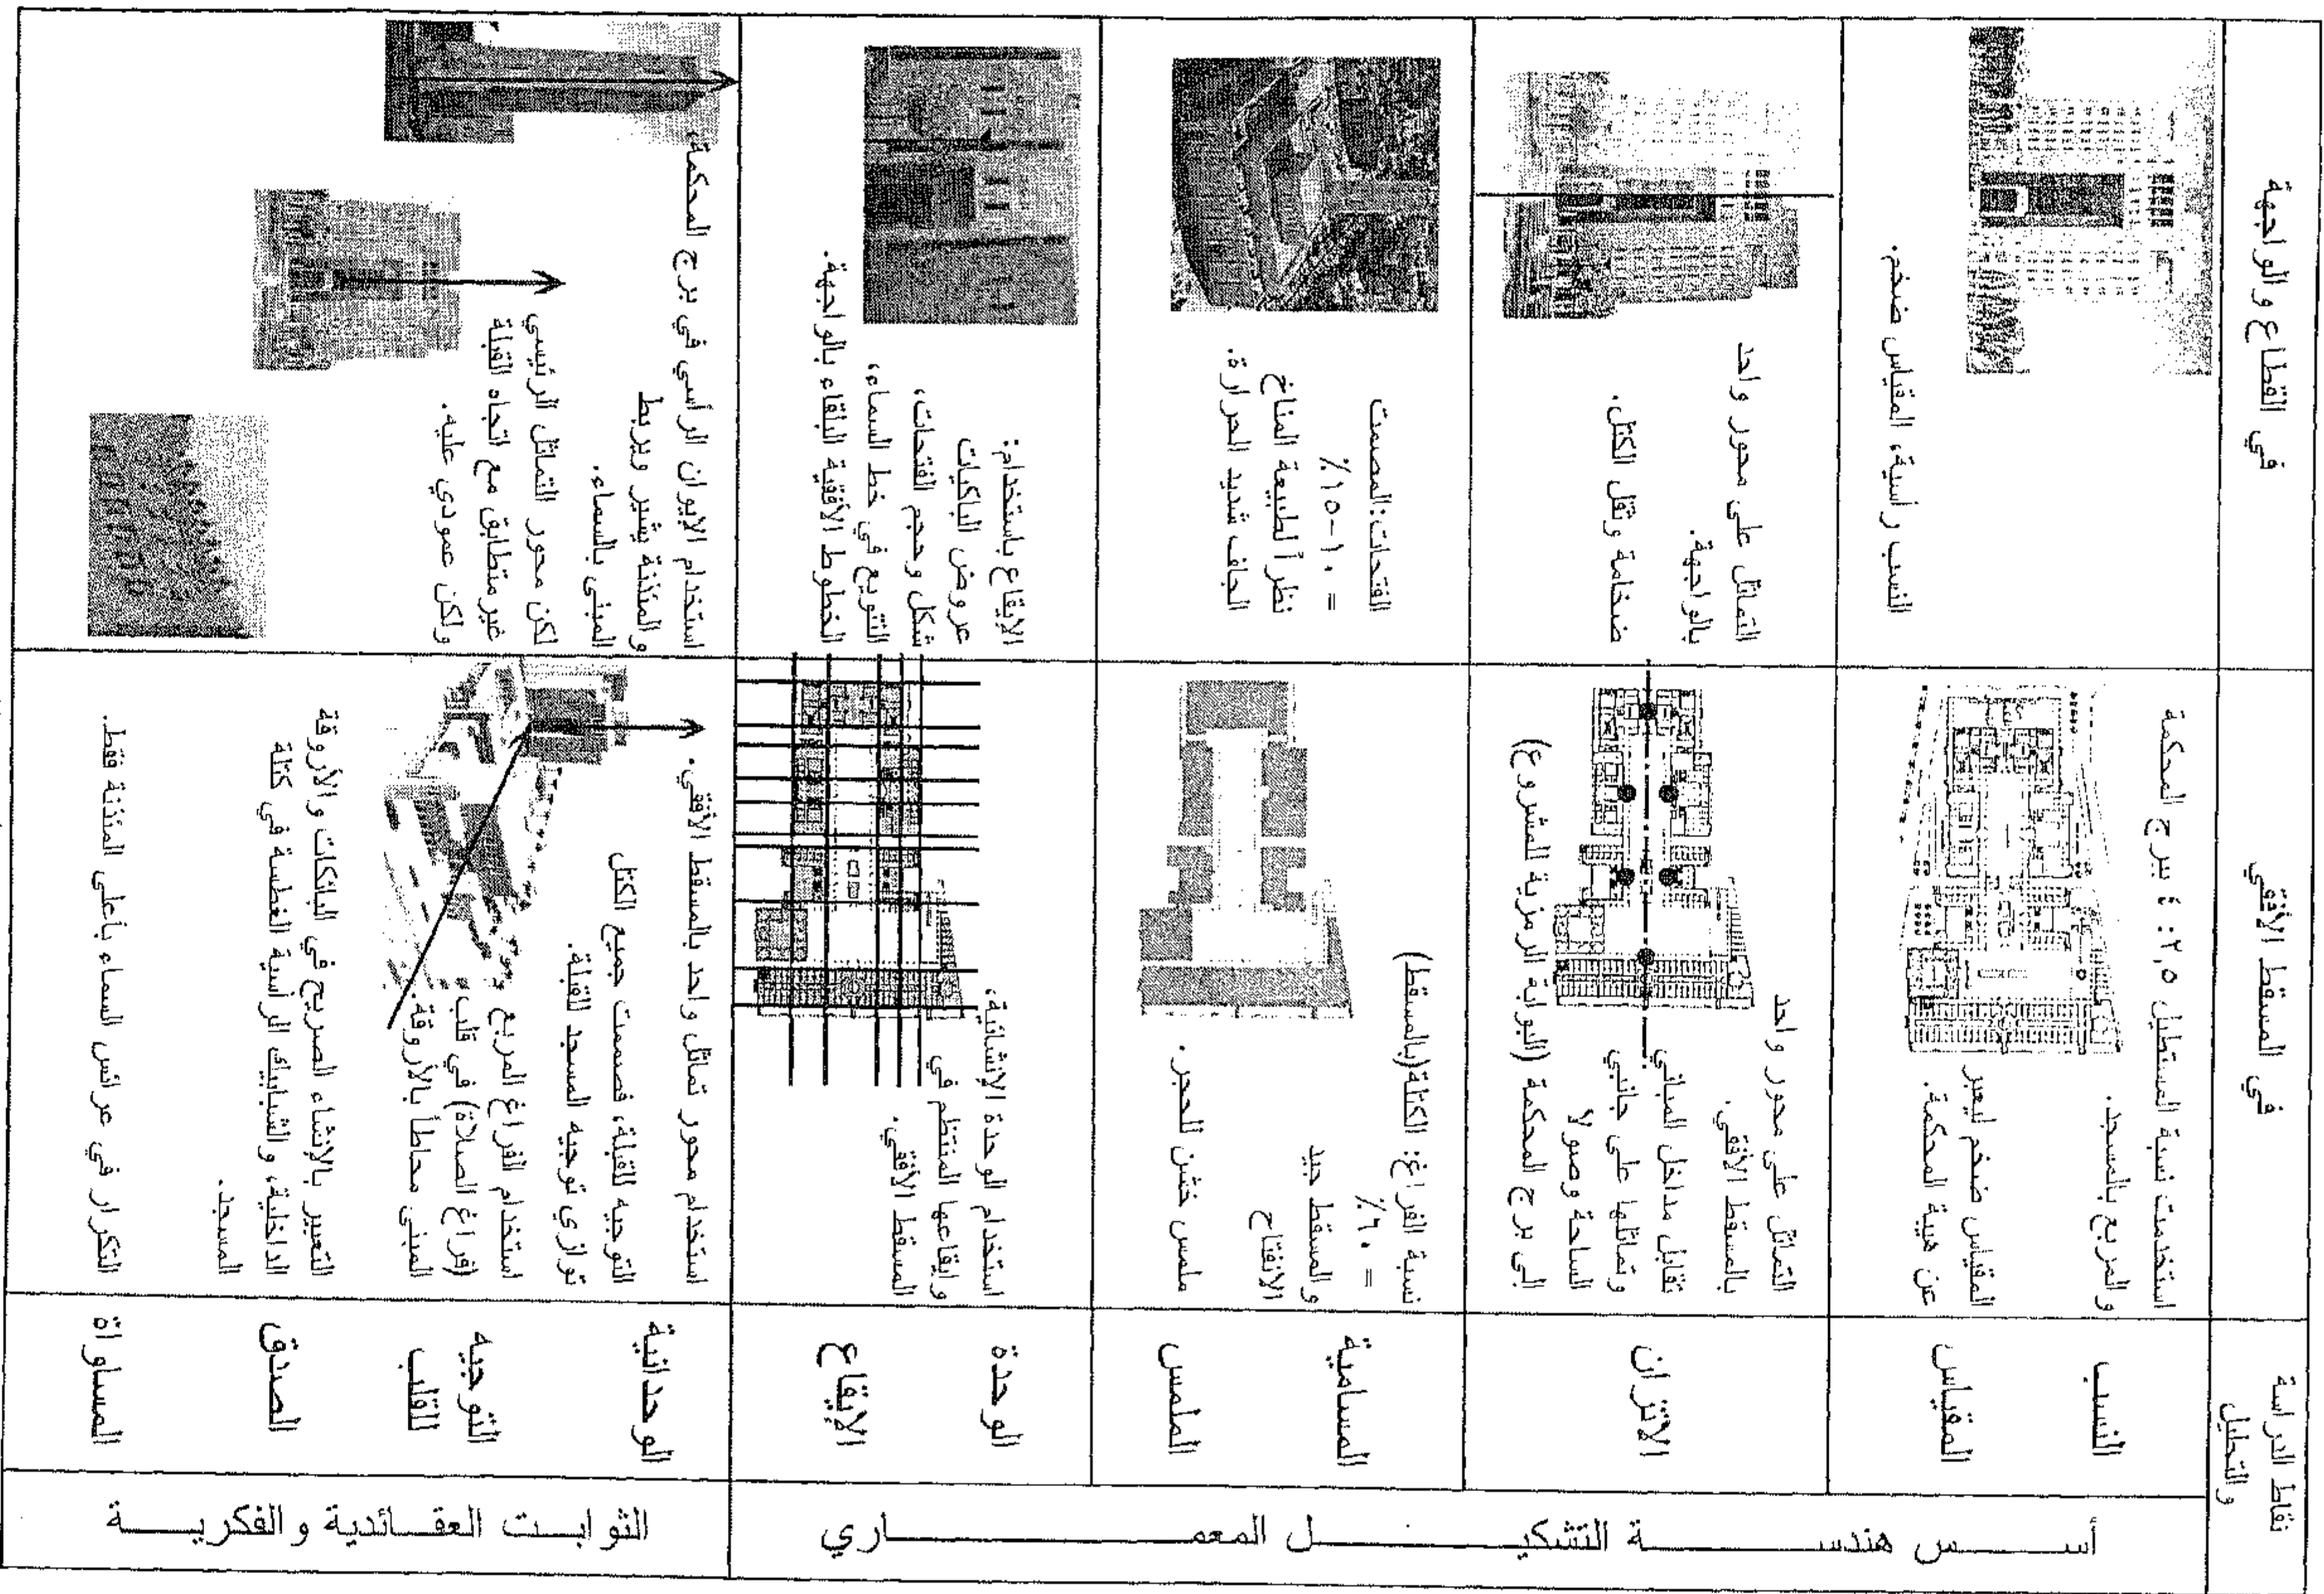 نقاط الدراسة
والتحليل
في المسقط الأفقي
في القطاع والواجهة
أسس هندسة التشكيل المعماري
النسب
المقياس
استخدمت نسبة المستطيل ٢,٥ : ٤ ببرج المحكمة
والمربع بالمسجد.
المقياس ضخم ليعبر
عن هيبة المحكمة.
النسب رأسية، المقياس ضخم.
الاتزان
التماثل على محور واحد
بالمسقط الأفقي.
تقابل مداخل المباني
وتماثلها على جانبي
الساحة وصولا
إلى برج المحكمة (البوابة الرمزية للمشروع)
التماثل على محور واحد
بالواجهة.
ضخامة وثقل الكتل.
المسامية
الملمس
نسبة الفراغ: الكتلة(بالمسقط)
= ٦٠٪
والمسقط جيد
الانفتاح
ملمس خشن للحجر.
الفتحات:المصمت
= ١٠-١٥٪
نظراً لطبيعة المناخ
الجاف شديد الحرارة.
الوحدة
الإيقاع
استخدام الوحدة الإنشائية،
وإيقاعها المنتظم في
المسقط الأفقي.
الإيقاع باستخدام:
عروض الباكيات
شكل وحجم الفتحات،
التنويع في خط السماء،
الخطوط الأفقية البلقاء بالواجهة.
الثوابت العقائدية والفكرية
الوحدانية
التوجيه
للقلب
الصدق
المساواة
استخدام محور تماثل واحد بالمسقط الأفقي.
التوجيه للقبلة، فصممت جميع الكتل
توازي توجيه المسجد للقبلة.
استخدام الفراغ المربع
(فراغ الصلاة) في قلب
المبنى محاطاً بالأروقة.
التعبير بالإنشاء الصريح في البائكات والأروقة
الداخلية، والشبابيك الرأسية الغطسة في كتلة
المسجد.
التكرار في عرائس السماء بأعلى المئذنة فقط.
استخدام الإيوان الرأسي في برج المحكمة،
والمئذنة يشير ويربط
المبنى بالسماء.
لكن محور التماثل الرئيسي
غير متطابق مع اتجاه القبلة
ولكن عمودي عليه.